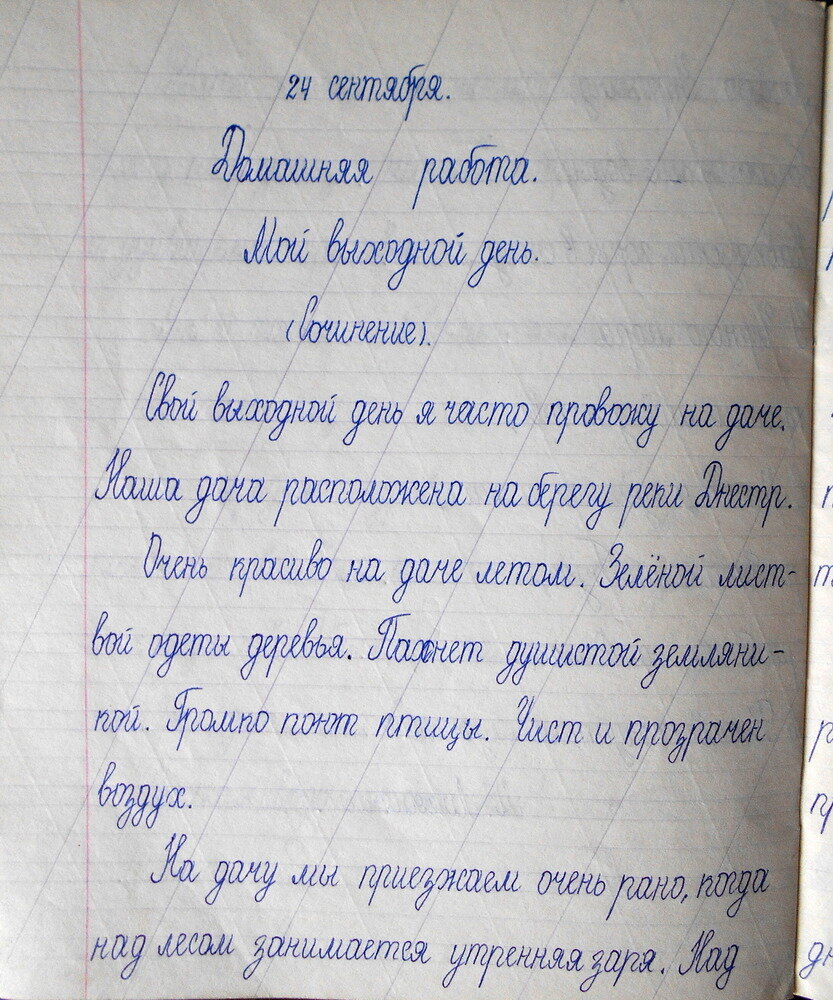 24 сентября.
Домашняя работа.
Мой выходной день.
(Сочинение).
Свой выходной день я часто провожу на даче.
Наша дача расположена на берегу реки Днестр.
Очень красиво на даче летом. Зелёной лист-
вой одеты деревья. Пахнет душистой земляни-
кой. Громко поют птицы. Чист и прозрачен
воздух.
На дачу мы приезжаем очень рано, когда
над лесом занимается утренняя заря. Над